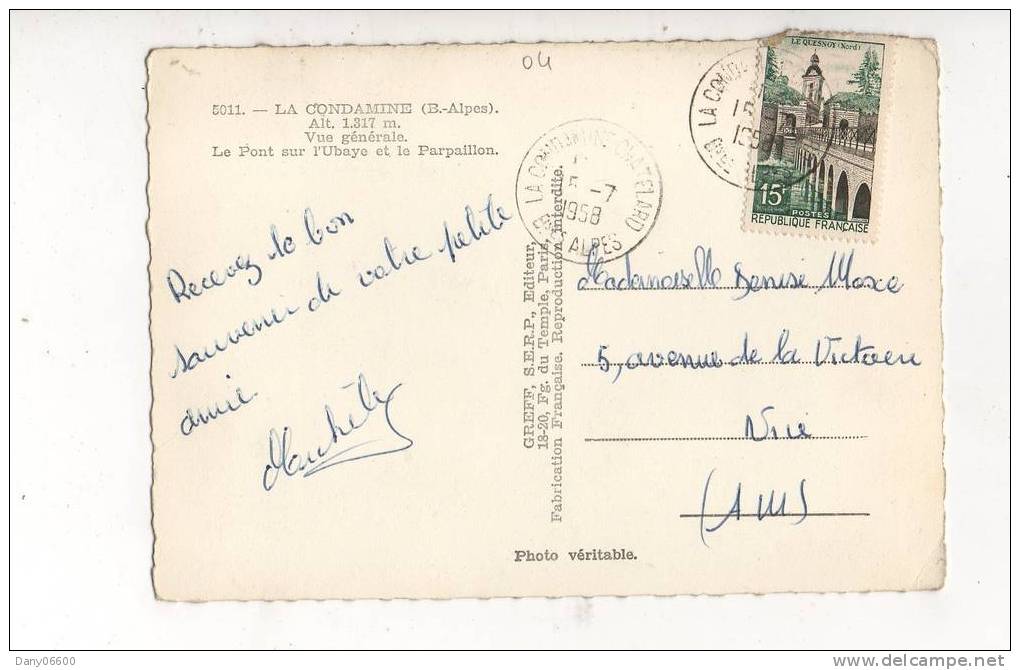 04
5011. — LA CONDAMINE (B.-Alpes).
Alt. 1.317 m.
Vue générale.
Le Pont sur l'Ubaye et le Parpaillon.
Recevez le bon
souvenir de votre petite
amie.
LA CONDAMINE CHATELARD
5 -7
1958
Bses ALPES
LE QUESNOY (Nord)
15F
POSTES
RÉPUBLIQUE FRANÇAISE
LA COND
15
195
GREFF, S.E.R.P., Editeur,
18-20, Fg. du Temple, Paris.
Fabrication Française. Reproduction interdite.
Mademoiselle Denise
5, avenue de la Victoire
Nice
(AM)
Photo véritable.
Dany06600
www.delcampe.net